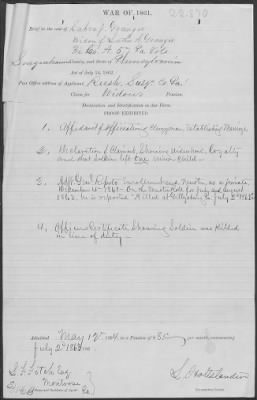 WAR OF 1861.
Brief in the case of
widow of
Co. A. 57 Pa Vols
Susquehanna County, and State of Pennsylvania
Act of July 14, 1862.
Post Office address of Applicant, Rush, Susq. Co Pa
Claim for Widows Pension.
Declaration and Identification in due Form.
PROOF EXHIBITED
1. Affidavit of officiating Clergyman Establishing Marriage
2. Declaration of Claimant, Showing widowhood, Loyalty
and that Soldier left one minor child
3. Adjt Genl Reports Enrollment and Muster, as a private,
December 1861 - On the Muster Roll for July and August
1863, he is reported "Killed at Gettysburg Pa July 2d 1863"
4. Officers Certificate Showing Soldier was Killed
in line of duty -
Admitted May 12th 1864, to a Pension of $8 per month, commencing
July 2d 1863
Fitch Esq
Montrose
Pa